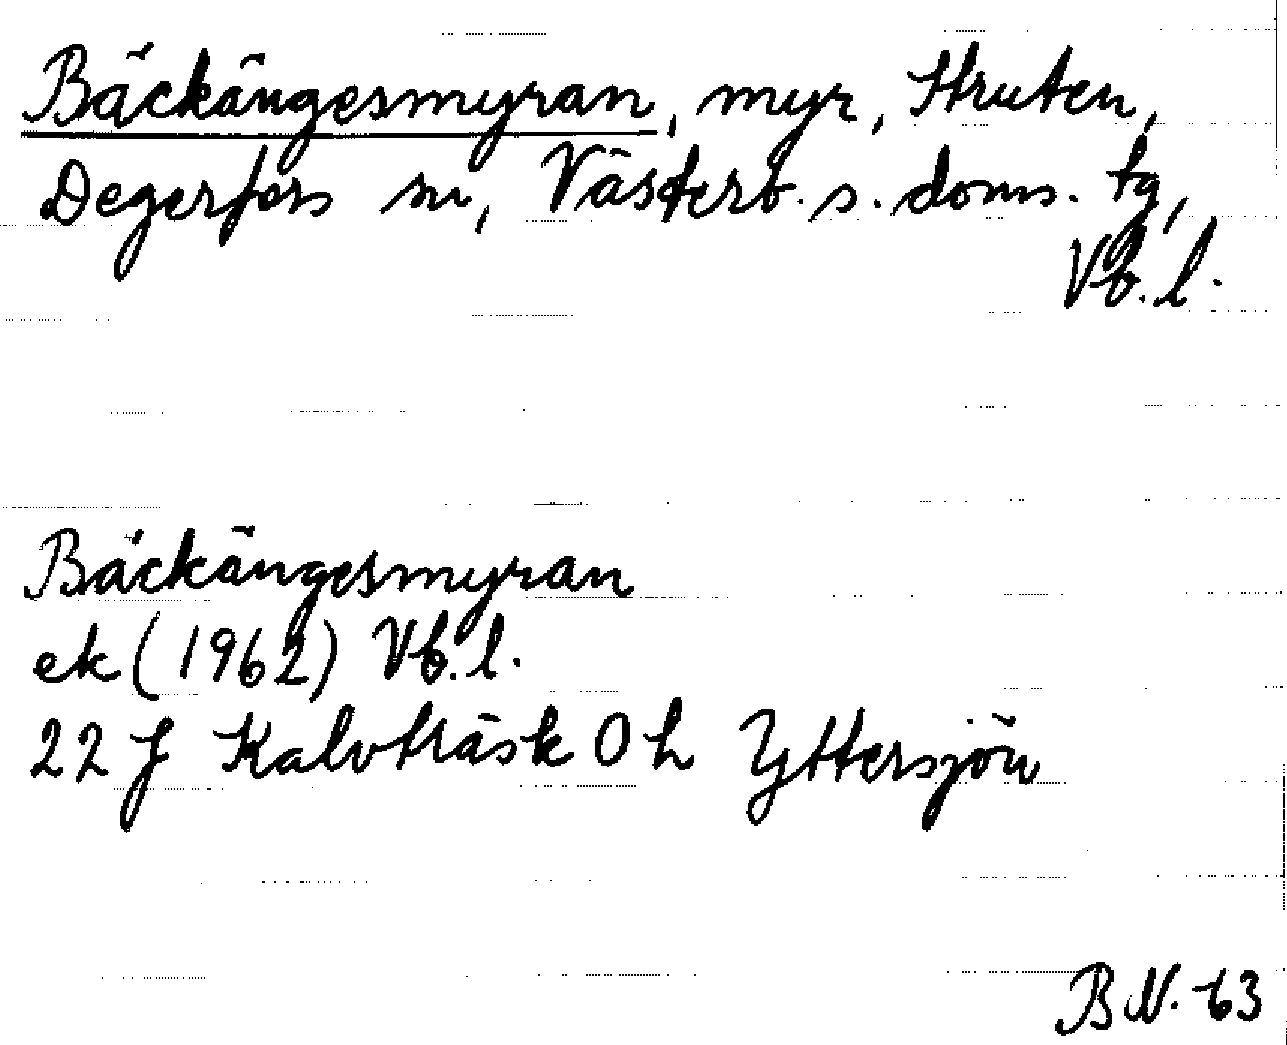 Bäckängesmyran, myr, Struten,
Degerfors sn, Västerb. s. doms. tg,
Vb. l.
Bäckängesmyran
ek (1962) Vb. l.
22 J Kalvträsk 0 h Yttersjön
B N. 63